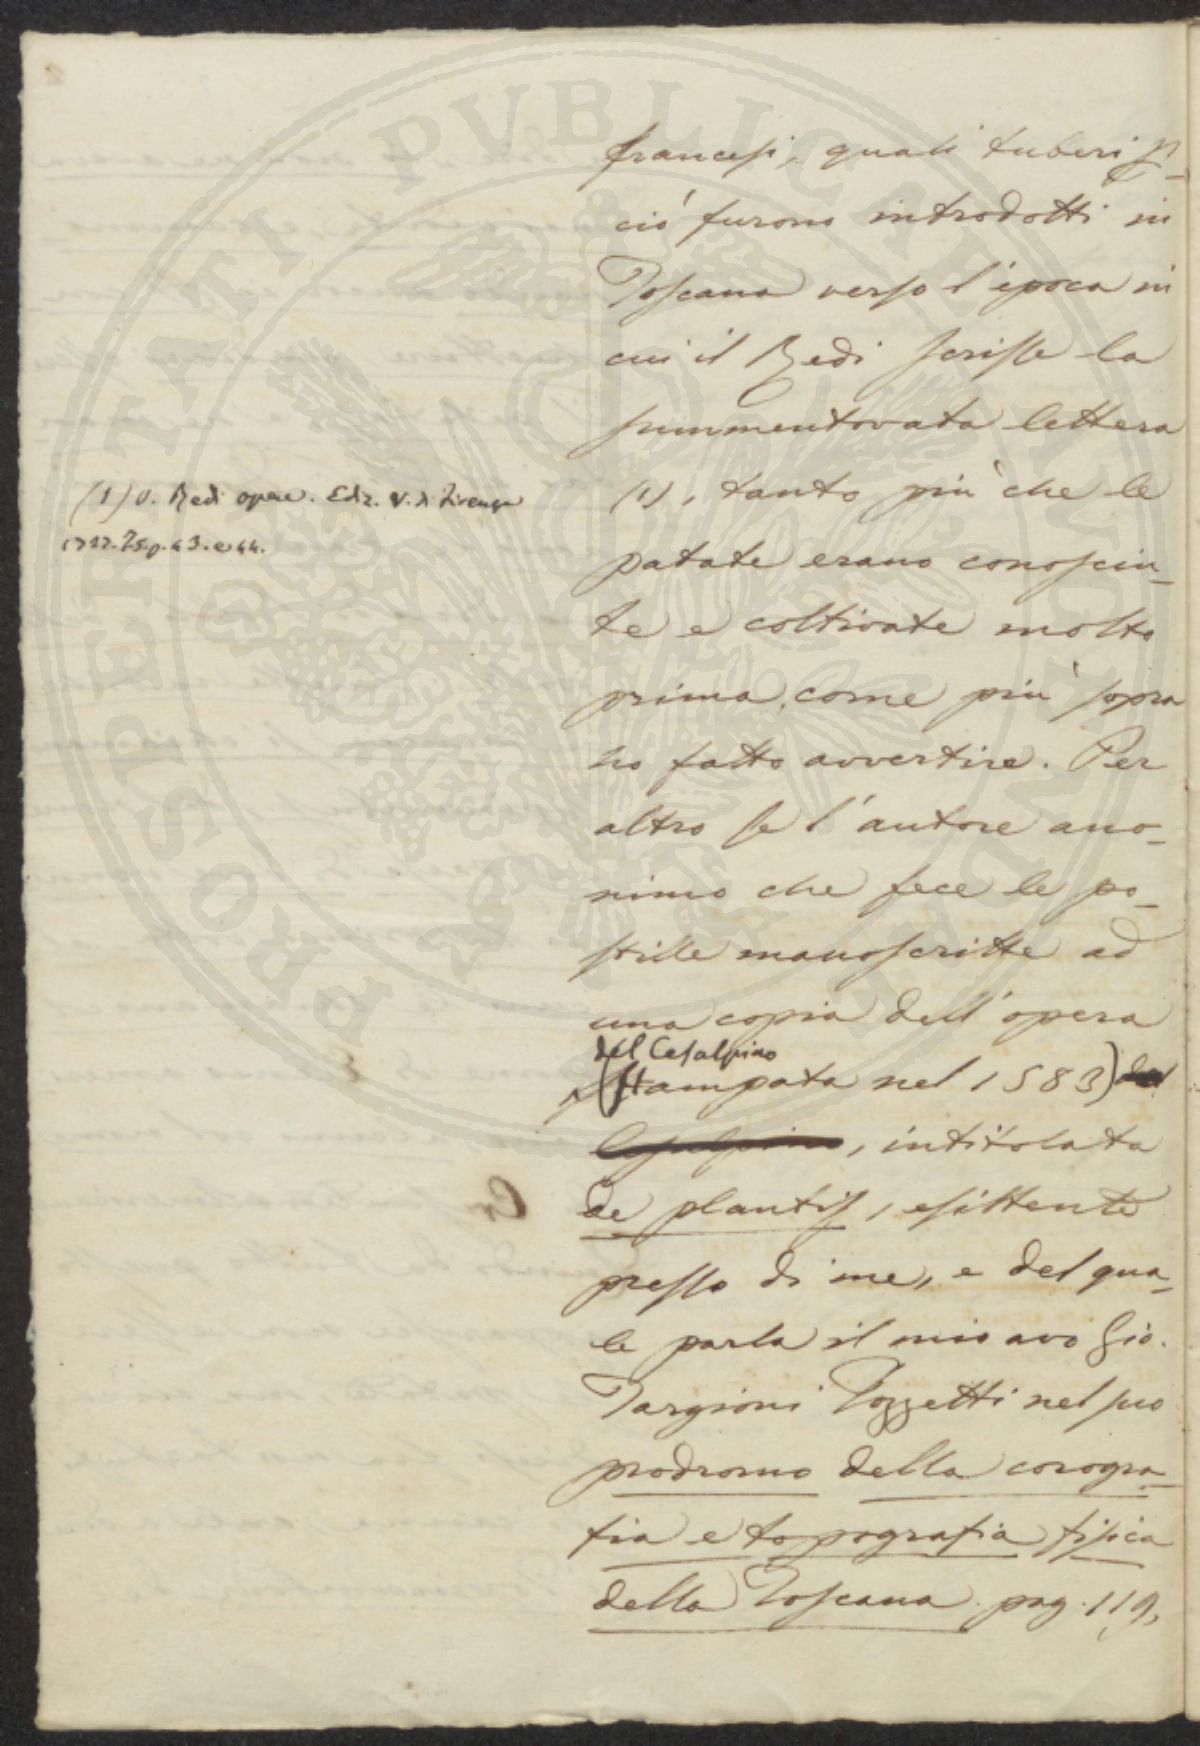 francesi, quali tuberi p.
ciò furono introdotti in
Toscana verso l'epoca in
cui il Redi scrisse la
summentovata lettera
(1), tanto più che le
patate erano conosciu-
te e coltivate molto
prima, come più sopra
ho fatto avvertire. Per
altro se l'autore ano-
nimo che fece le po-
stille manoscritte ad
una copia dell'opera
del Cesalpino
(stampata nel 1583) del
Cesalpino, intitolata
de plantis, esistente
presso di me, e del qua-
le parla il mio avo Gio.
Targioni Tozzetti nel suo
prodromo della corogra-
fia e topografia fisica
della Toscana pag. 119,
(1) V. Redi opere. Ediz. V. di Firenze
p. 43. e 44.
PROSPERITATI PUBLICAE